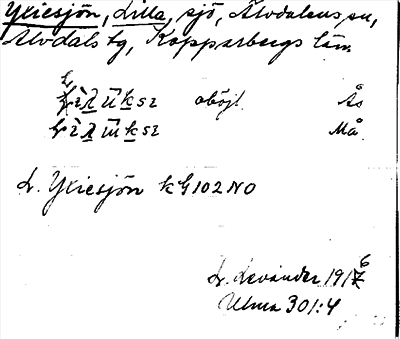 Yxiesjön, Lilla, sjö, Älvdalens sn,
Älvdals tg, Kopparbergs län.
oböjl. Ås
Må.
L. Yxiesjön kG102NO
L. Levander 1916
Ulma 301:4